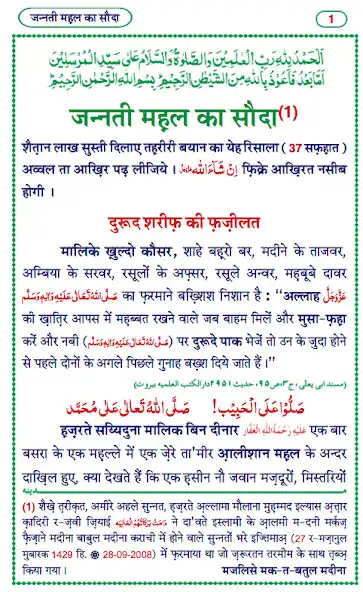 जन्नती महल का सौदा
1
اَلْحَمْدُ لِلّٰهِ رَبِّ الْعٰلَمِيْنَ وَالصَّلٰوةُ وَالسَّلَامُ عَلٰى سَيِّدِ الْمُرْسَلِيْنَ
اَمَّا بَعْدُ فَاَعُوْذُ بِاللّٰهِ مِنَ الشَّيْطٰنِ الرَّجِيْمِ بِسْمِ اللّٰهِ الرَّحْمٰنِ الرَّحِيْمِ
जन्नती महल का सौदा(1)
शैत़ान लाख सुस्ती दिलाए तह़रीरी बयान का येह रिसाला ( 37 सफ़ह़ात )
अव्वल ता आख़िर पढ़ लीजिये । اِنْ شَآءَاللّٰه फ़िक्रे आख़िरत नसीब
होगी ।
दुरूद शरीफ़ की फ़ज़ीलत
मालिके ख़ुल्दो कौसर, शाहे बह़रो बर, मदीने के ताजवर,
अम्बिया के सरवर, रसूलों के अफ़्सर, रसूले अन्वर, मह़बूबे दावर
صَلَّى اللّٰهُ تَعَالٰى عَلَيْهِ وَاٰلِهٖ وَسَلَّم का फ़रमाने बख़्शिश निशान है : “अल्लाह عَزَّوَجَلَّ
की ख़ात़िर आपस में महब्बत रखने वाले जब बाहम मिलें और मुसा-फ़ह़ा
करें और नबी (صَلَّى اللّٰهُ تَعَالٰى عَلَيْهِ وَاٰلِهٖ وَسَلَّم) पर दुरूदे पाक भेजें तो उन के जुदा होने
से पहले दोनों के अगले पिछले गुनाह बख़्श दिये जाते हैं ।”
(مسند ابی یعلی، ج۳، ص۹۵، حدیث ۲۹۵۱ دارالکتب العلمیه بیروت)
صَلُّوْا عَلَى الْحَبِيْب! صَلَّى اللّٰهُ تَعَالٰى عَلٰى مُحَمَّد
ह़ज़रते सय्यिदुना मालिक बिन दीनार عَلَيْهِ رَحْمَةُ اللّٰهِ الْغَفَّار एक बार
बसरा के एक महल्ले में एक ज़ेरे ता'मीर आ़लीशान मह़ल के अन्दर
दाख़िल हुए, क्या देखते हैं कि एक ह़सीन नौ जवान मज़दूरों, मिस्तरियों
مدینه
(1) शैख़े त़रीक़त, अमीरे अहले सुन्नत, ह़ज़रते अ़ल्लामा मौलाना मुह़म्मद इल्यास अ़त्त़ार
क़ादिरी र-ज़वी ज़ियाई دَامَتْ بَرَكَاتُهُمُ الْعَالِيَه ने दा'वते इस्लामी के आ़लमी म-दनी मर्कज़
फ़ैज़ाने मदीना बाबुल मदीना कराची में होने वाले सुन्नतों भरे इज्तिमाअ़ (27 र-मज़ानुल
मुबारक 1429 हि. 28-09-2008) में फ़रमाया था जो ज़रूरतन तरमीम के साथ त़ब्अ़
किया गया । मजलिसे मक-त-बतुल मदीना